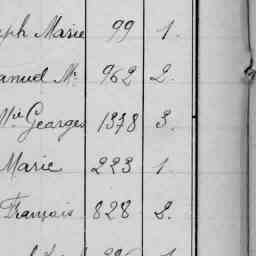 eph Marie 99 1.
anuel M. 962 2.
Mie Georges 1378 3.
Marie 223 1.
François 828 2.